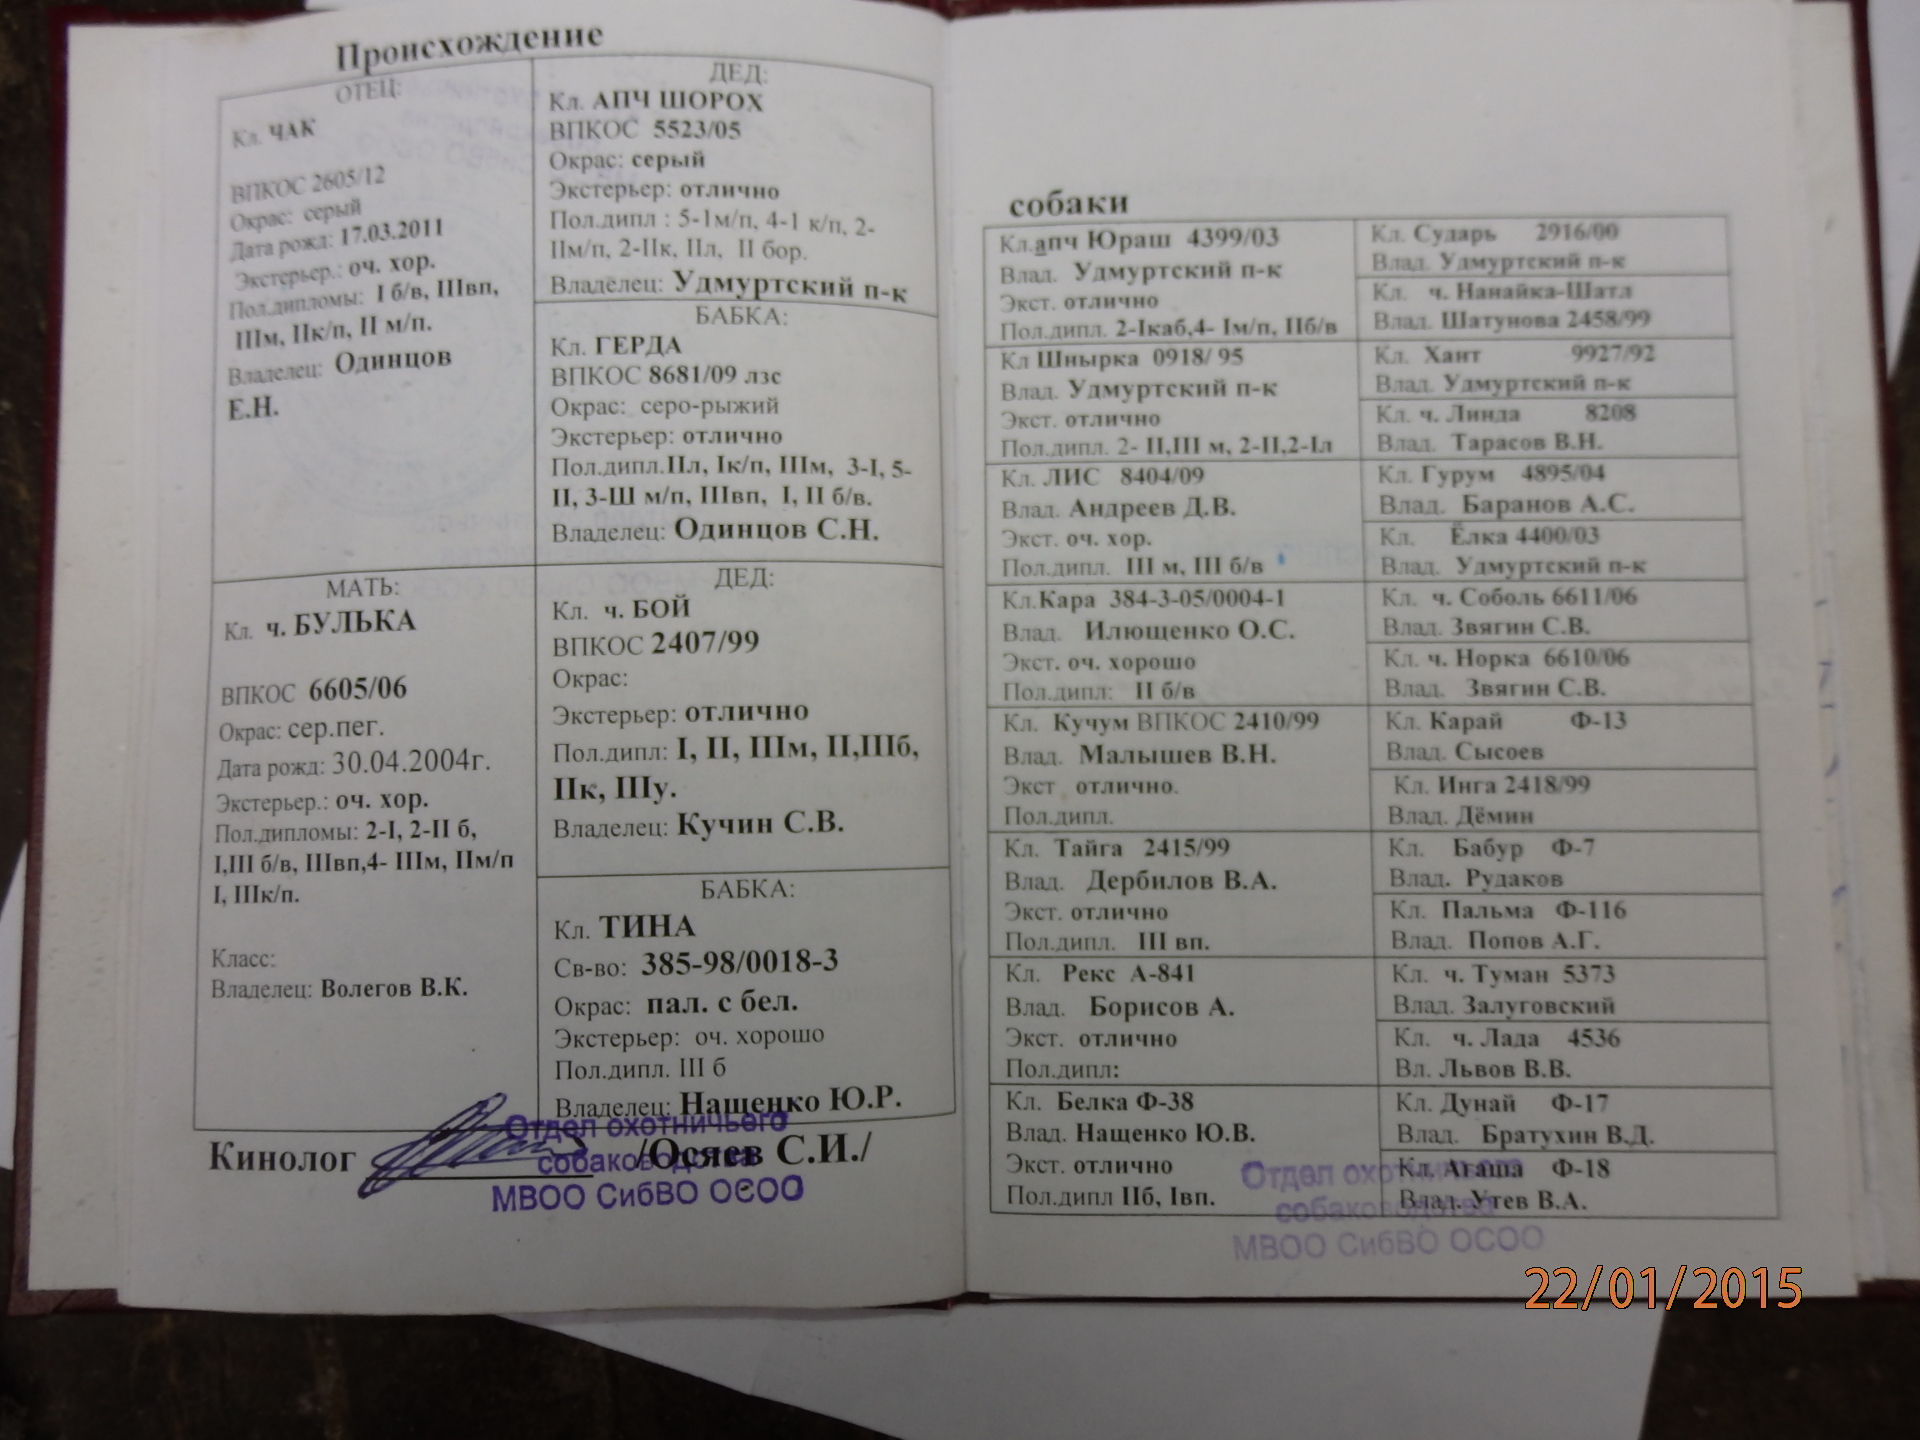 Происхождение
ОТЕЦ:
Кл. ЧАК
ВПКОС 2605/12
Окрас: серый
Дата рожд: 17.03.2011
Экстерьер.: оч. хор.
Пол.дипломы: I б/в, IIIвп,
IIIм, IIк/п, II м/п.
Владелец: Одинцов
Е.Н.
ДЕД:
Кл. АПЧ ШОРОХ
ВПКОС 5523/05
Окрас: серый
Экстерьер: отлично
Пол.дипл : 5-1м/п, 4-1 к/п, 2-
IIм/п, 2-IIк, IIл, II бор.
Владелец: Удмуртский п-к
БАБКА:
Кл. ГЕРДА
ВПКОС 8681/09 лзс
Окрас: серо-рыжий
Экстерьер: отлично
Пол.дипл.IIл, Iк/п, IIIм, 3-I, 5-
II, 3-Ш м/п, IIIвп, I, II б/в.
Владелец: Одинцов С.Н.
МАТЬ:
Кл. ч. БУЛЬКА
ВПКОС 6605/06
Окрас: сер.пег.
Дата рожд: 30.04.2004г.
Экстерьер.: оч. хор.
Пол.дипломы: 2-I, 2-II б,
I,III б/в, IIIвп,4- IIIм, IIм/п
I, IIIк/п.
Класс:
Владелец: Волегов В.К.
ДЕД:
Кл. ч. БОЙ
ВПКОС 2407/99
Окрас:
Экстерьер: отлично
Пол.дипл: I, II, IIIм, II,IIIб,
IIк, IIIу.
Владелец: Кучин С.В.
БАБКА:
Кл. ТИНА
Св-во: 385-98/0018-3
Окрас: пал. с бел.
Экстерьер: оч. хорошо
Пол.дипл. III б
Владелец: Нащенко Ю.Р.
Кинолог /Осяев С.И./
Отдел охотничьего
собаководства
МВОО СибВО ОСОО
собаки
Кл.апч Юраш 4399/03
Влад. Удмуртский п-к
Экст. отлично
Пол.дипл. 2-Iкаб,4- Iм/п, IIб/в
Кл Шнырка 0918/ 95
Влад. Удмуртский п-к
Экст. отлично
Пол.дипл. 2- II,III м, 2-II,2-Iл
Кл. ЛИС 8404/09
Влад. Андреев Д.В.
Экст. оч. хор.
Пол.дипл. III м, III б/в
Кл.Кара 384-3-05/0004-1
Влад. Илющенко О.С.
Экст. оч. хорошо
Пол.дипл: II б/в
Кл. Кучум ВПКОС 2410/99
Влад. Малышев В.Н.
Экст . отлично.
Пол.дипл.
Кл. Тайга 2415/99
Влад. Дербилов В.А.
Экст. отлично
Пол.дипл. III вп.
Кл. Рекс А-841
Влад. Борисов А.
Экст. отлично
Пол.дипл:
Кл. Белка Ф-38
Влад. Нащенко Ю.В.
Экст. отлично
Пол.дипл IIб, Iвп.
Кл. Сударь 2916/00
Влад. Удмуртский п-к
Кл. ч. Нанайка-Шатл
Влад. Шатунова 2458/99
Кл. Хант 9927/92
Влад. Удмуртский п-к
Кл. ч. Линда 8208
Влад. Тарасов В.Н.
Кл. Гурум 4895/04
Влад. Баранов А.С.
Кл. Ёлка 4400/03
Влад. Удмуртский п-к
Кл. ч. Соболь 6611/06
Влад. Звягин С.В.
Кл. ч. Норка 6610/06
Влад. Звягин С.В.
Кл. Карай Ф-13
Влад. Сысоев
Кл. Инга 2418/99
Влад. Дёмин
Кл. Бабур Ф-7
Влад. Рудаков
Кл. Пальма Ф-116
Влад. Попов А.Г.
Кл. ч. Туман 5373
Влад. Залуговский
Кл. ч. Лада 4536
Вл. Львов В.В.
Кл. Дунай Ф-17
Влад. Братухин В.Д.
Кл. Агаша Ф-18
Влад. Утев В.А.
Отдел охотничьего
собаководства
МВОО СибВО ОСОО
22/01/2015